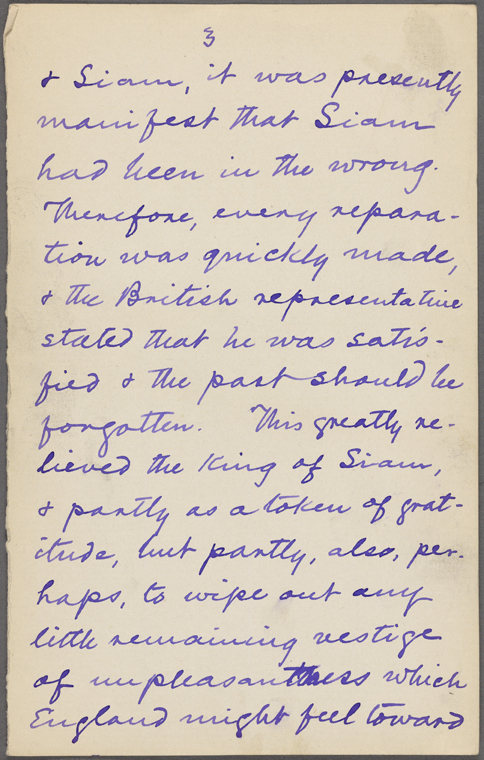 3
& Siam, it was presently
manifest that Siam
had been in the wrong.
Therefore, every repara-
tion was quickly made,
& the British representative
stated that he was satis-
fied & the past should be
forgotten. This greatly re-
lieved the King of Siam,
& partly as a token of grat-
itude, but partly, also, per-
haps, to wipe out any
little remaining vestige
of unpleasantness which
England might feel toward